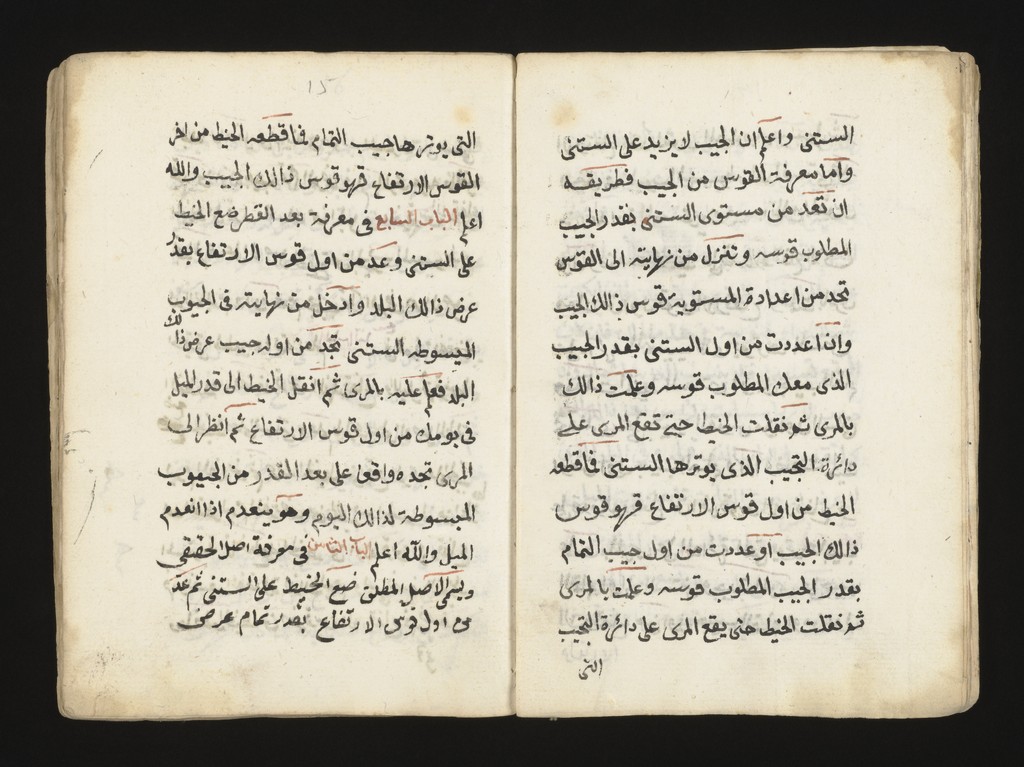 الستنى واعلم ان الجيب لا يزيد على الستنى
واما معرفة القوس من الجيب فطريقه
ان تعد من مستوى الستنى بقدر الجيب
المطلوب قوسه وتنزل من نهايته الى القوس
تجد من اعداده المستوية قوس ذالك الجيب
وان اعددت من اول الستنى بقدر الجيب
الذى معك المطلوب قوسه وعلمت ذالك
بالمرى ثم نقلت الخيط حتى تقع المرى على
دائرة التجيب الذى يوترها الستنى فما قطعه
الخيط من اول قوس الارتفاع فهو قوس
ذالك الجيب او عددت من اول جيب التمام
بقدر الجيب المطلوب قوسه وعلمت بالمرى
ثم نقلت الخيط حتى يقع المرى على دائرة التجيب
التى
١٥
التى يوترها جيب التمام فما قطعه الخيط من اخر
القوس الارتفاع فهو قوس ذالك الجيب والله
اعلم الباب السابع فى معرفة بعد القطر ضع الخيط
على الستنى وعد من اول قوس الارتفاع بقدر
عرض ذالك البلد وادخل من نهايته فى الجيوب
المبسوطه الستنى تجد من اوله جيب عرض ذالك
البلد فعلم عليه بالمرى ثم انقل الخيط الى قدر الميل
فى يومك من اول قوس الارتفاع ثم انظر الى
المرى تجده واقعا على بعد القدر من الجيوب
المبسوطة لذالك اليوم وهو ينعدم اذا انعدم
الميل والله اعلم الباب الثامن فى معرفة اصل الحقيقى
ويسمى الاصل المطلق ضع الخيط على الستنى ثم عد
من اول قوس الارتفاع بقدر تمام عرض